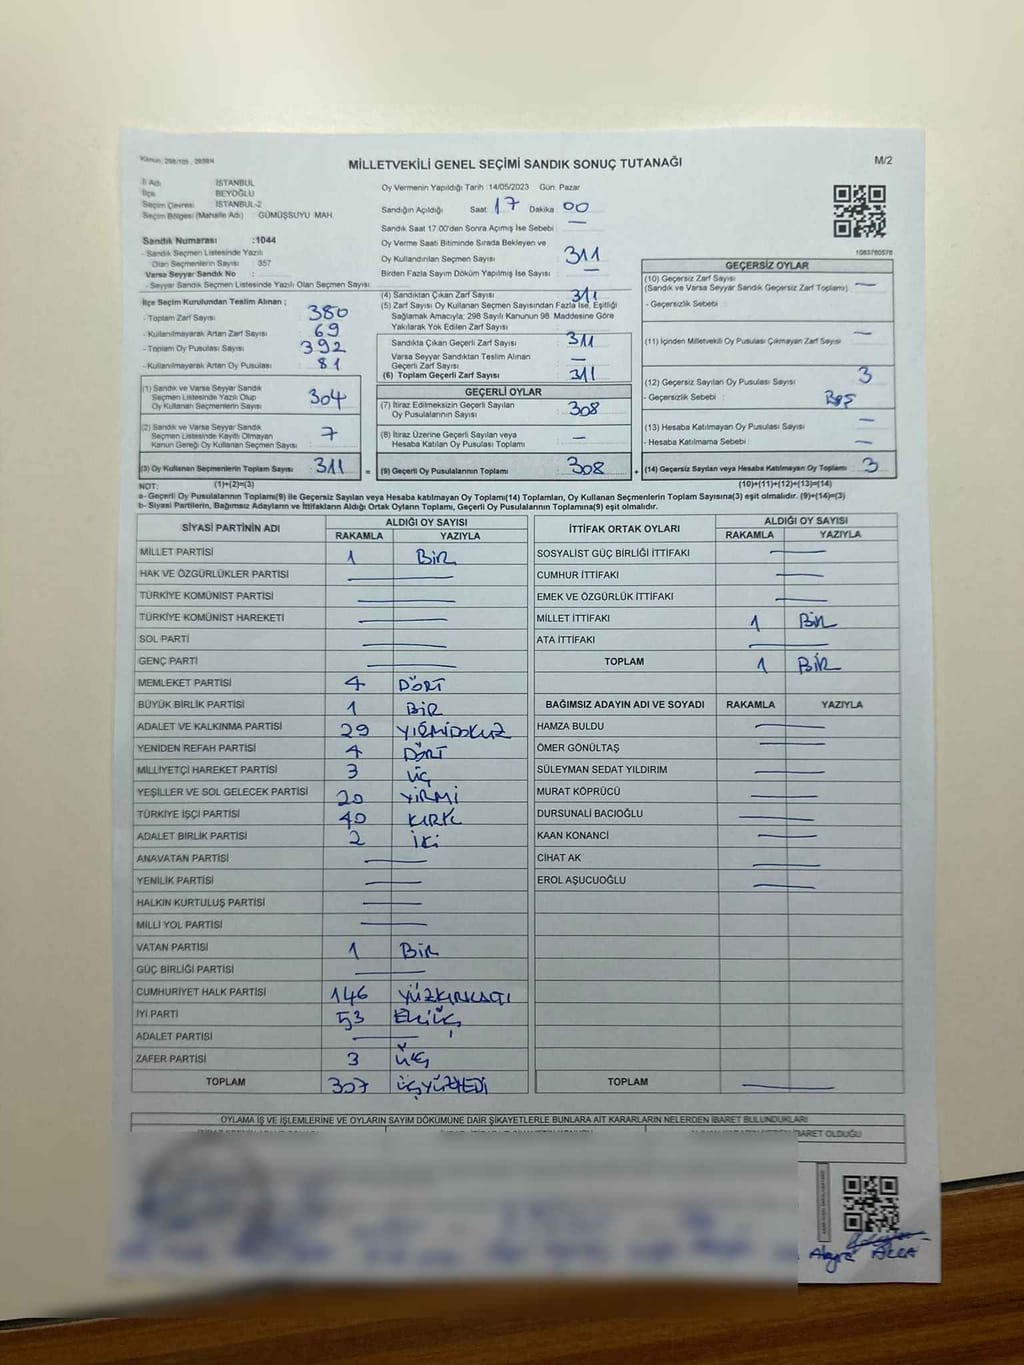 Kanun, 298/105 , 2839/4
MİLLETVEKİLİ GENEL SEÇİMİ SANDIK SONUÇ TUTANAĞI
M/2
İl Adı : İSTANBUL
İlçe : BEYOĞLU
Seçim Çevresi : İSTANBUL-2
Seçim Bölgesi (Mahalle Adı) : GÜMÜŞSUYU MAH.
Sandık Numarası :1044
- Sandık Seçmen Listesinde Yazılı
Olan Seçmenlerin Sayısı : 357
Varsa Seyyar Sandık No :
- Seyyar Sandık Seçmen Listesinde Yazılı Olan Seçmen Sayısı :
İlçe Seçim Kurulundan Teslim Alınan ;
- Toplam Zarf Sayısı : 380
- Kullanılmayarak Artan Zarf Sayısı : 69
- Toplam Oy Pusulası Sayısı : 392
- Kullanılmayarak Artan Oy Pusulası : 81
(1) Sandık ve Varsa Seyyar Sandık
Seçmen Listesinde Yazılı Olup
Oy Kullanan Seçmenlerin Sayısı : 304
(2) Sandık ve Varsa Seyyar Sandık
Seçmen Listesinde Kayıtlı Olmayan
Kanun Gereği Oy Kullanan Seçmen Sayısı : 7
(3) Oy Kullanan Seçmenlerin Toplam Sayısı : 311 =
Oy Vermenin Yapıldığı Tarih :14/05/2023 Gün: Pazar
Sandığın Açıldığı Saat: 17 Dakika : 00
Sandık Saat 17:00'den Sonra Açımış İse Sebebi : —
Oy Verme Saati Bitiminde Sırada Bekleyen ve
Oy Kullandırılan Seçmen Sayısı : 311
Birden Fazla Sayım Döküm Yapılmış İse Sayısı : —
(4) Sandıktan Çıkan Zarf Sayısı : 311
(5) Zarf Sayısı Oy Kullanan Seçmen Sayısından Fazla İse, Eşitliği
Sağlamak Amacıyla; 298 Sayılı Kanunun 98. Maddesine Göre
Yakılarak Yok Edilen Zarf Sayısı :
Sandıkta Çıkan Geçerli Zarf Sayısı : 311
Varsa Seyyar Sandıktan Teslim Alınan
Geçerli Zarf Sayısı : —
(6) Toplam Geçerli Zarf Sayısı : 311
GEÇERLİ OYLAR
(7) İtiraz Edilmeksizin Geçerli Sayılan
Oy Pusulalarının Sayısı : 308
(8) İtiraz Üzerine Geçerli Sayılan veya
Hesaba Katılan Oy Pusulalarının Sayısı : —
(9) Geçerli Oy Pusulalarının Toplamı : 308 +
1083780578
GEÇERSİZ OYLAR
(10) Geçersiz Zarf Sayısı
(Sandık ve Varsa Seyyar Sandık Geçersiz Zarf Toplamı) : —
- Geçersizlik Sebebi :
(11) İçinden Milletvekili Oy Pusulası Çıkmayan Zarf Sayısı : —
(12) Geçersiz Sayılan Oy Pusulası Sayısı : 3
- Geçersizlik Sebebi : Boş
(13) Hesaba Katılmayan Oy Pusulası Sayısı : —
- Hesaba Katılmama Sebebi : —
(14) Geçersiz Sayılan veya Hesaba Katılmayan Oy Toplamı : 3
NOT: (1)+(2)=(3) (10)+(11)+(12)+(13)=(14)
a- Geçerli Oy Pusulalarının Toplamı(9) ile Geçersiz Sayılan veya Hesaba katılmayan Oy Toplamı(14) Toplamları, Oy Kullanan Seçmenlerin Toplam Sayısına(3) eşit olmalıdır. (9)+(14)=(3)
b- Siyasi Partilerin, Bağımsız Adayların ve İttifakların Aldığı Ortak Oyların Toplamı, Geçerli Oy Pusulalarının Toplamına(9) eşit olmalıdır.
SİYASİ PARTİNİN ADI ALDIĞI OY SAYISI
RAKAMLA YAZIYLA
MİLLET PARTİSİ 1 BİR
HAK VE ÖZGÜRLÜKLER PARTİSİ —
TÜRKİYE KOMÜNİST PARTİSİ —
TÜRKİYE KOMÜNİST HAREKETİ —
SOL PARTİ —
GENÇ PARTİ —
MEMLEKET PARTİSİ 4 DÖRT
BÜYÜK BİRLİK PARTİSİ 1 BİR
ADALET VE KALKINMA PARTİSİ 29 YİRMİDOKUZ
YENİDEN REFAH PARTİSİ 4 DÖRT
MİLLİYETÇİ HAREKET PARTİSİ 3 üç
YEŞİLLER VE SOL GELECEK PARTİSİ 20 YİRMİ
TÜRKİYE İŞÇİ PARTİSİ 40 KIRK
ADALET BİRLİK PARTİSİ 2 İKİ
ANAVATAN PARTİSİ —
YENİLİK PARTİSİ —
HALKIN KURTULUŞ PARTİSİ —
MİLLİ YOL PARTİSİ —
VATAN PARTİSİ 1 BİR
GÜÇ BİRLİĞİ PARTİSİ —
CUMHURİYET HALK PARTİSİ 146 YÜZKIRKALTI
İYİ PARTİ 53 ELLİÜÇ
ADALET PARTİSİ —
ZAFER PARTİSİ 3 ÜÇ
TOPLAM 307 ÜÇYÜZYEDİ
İTTİFAK ORTAK OYLARI ALDIĞI OY SAYISI
RAKAMLA YAZIYLA
SOSYALİST GÜÇ BİRLİĞİ İTTİFAKI —
CUMHUR İTTİFAKI —
EMEK VE ÖZGÜRLÜK İTTİFAKI —
MİLLET İTTİFAKI 1 BİR
ATA İTTİFAKI —
TOPLAM 1 BİR
BAĞIMSIZ ADAYIN ADI VE SOYADI RAKAMLA YAZIYLA
HAMZA BULDU —
ÖMER GÖNÜLTAŞ —
SÜLEYMAN SEDAT YILDIRIM —
MURAT KÖPRÜCÜ —
DURSUNALİ BACIOĞLU —
KAAN KONANCİ —
CİHAT AK —
EROL AŞUCUOĞLU —
TOPLAM —
OYLAMA İŞ VE İŞLEMLERİNE VE OYLARIN SAYIM DÖKÜMÜNE DAİR ŞİKAYETLERLE BUNLARA AİT KARARLARIN NELERDEN İBARET BULUNDUKLARI
İBARET OLDUĞU